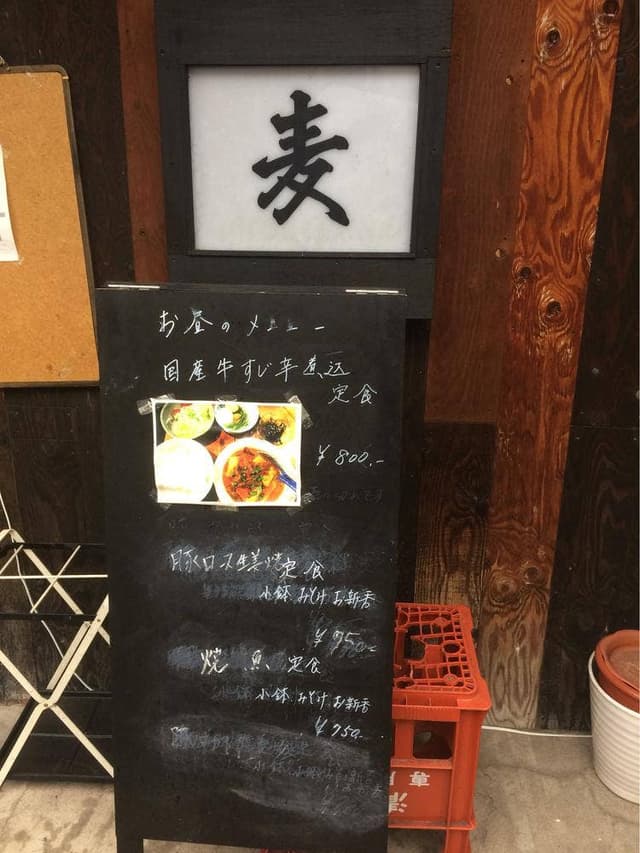 麦
お昼のメニュー
国産牛すじ辛煮込
定食
¥800.-
豚ロス生姜焼定食
小鉢 みそ汁 お新香
焼魚定食
小鉢 みそ汁 お新香
¥750.-